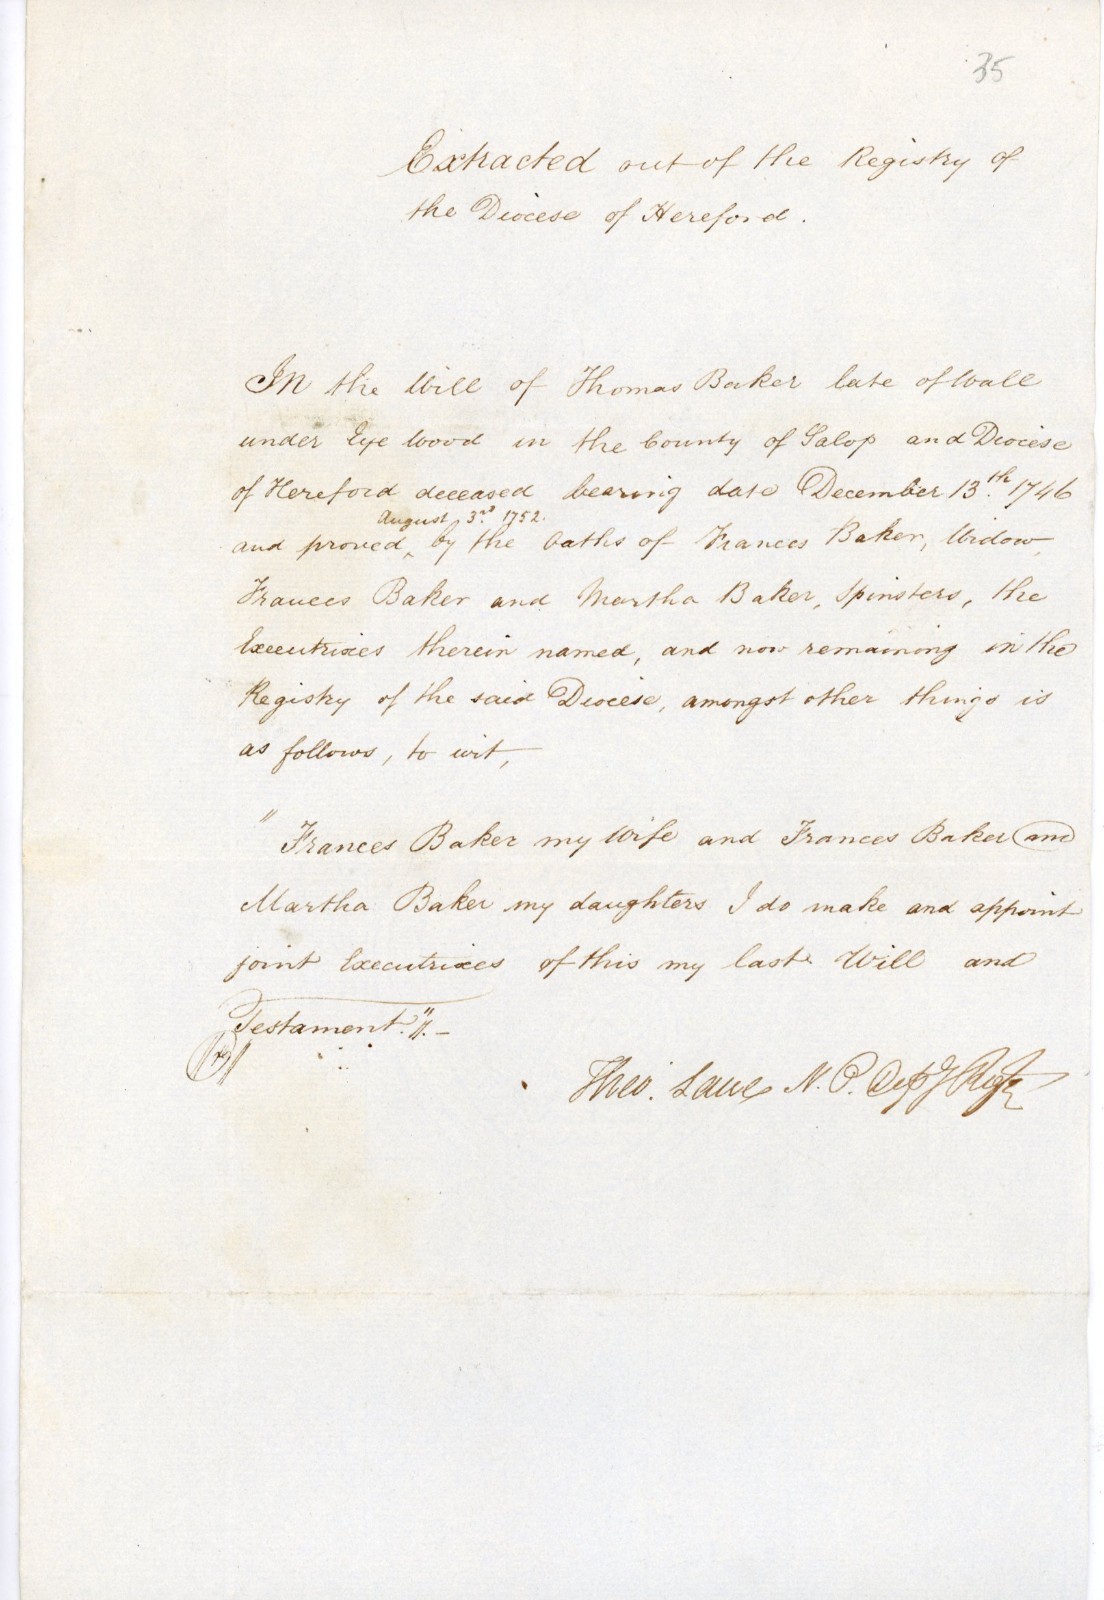 35
Extracted out of the Registry of
the Diocese of Hereford.
In the Will of Thomas Baker late of Wall
under Eye Wood in the County of Salop and Diocese
of Hereford deceased bearing date December 13.th 1746
August 3.rd 1752.
and proved ‸ by the Oaths of Frances Baker, Widow,
Frances Baker and Martha Baker, Spinsters, the
Executrixes therein named, and now remaining in the
Registry of the said Diocese, amongst other things is
as follows, to wit,
"Frances Baker my Wife and Frances Baker and
Martha Baker my daughters I do make and appoint
joint Executrixes of this my last Will and
Testament."
Theo. Lane N. P. Depy Regr